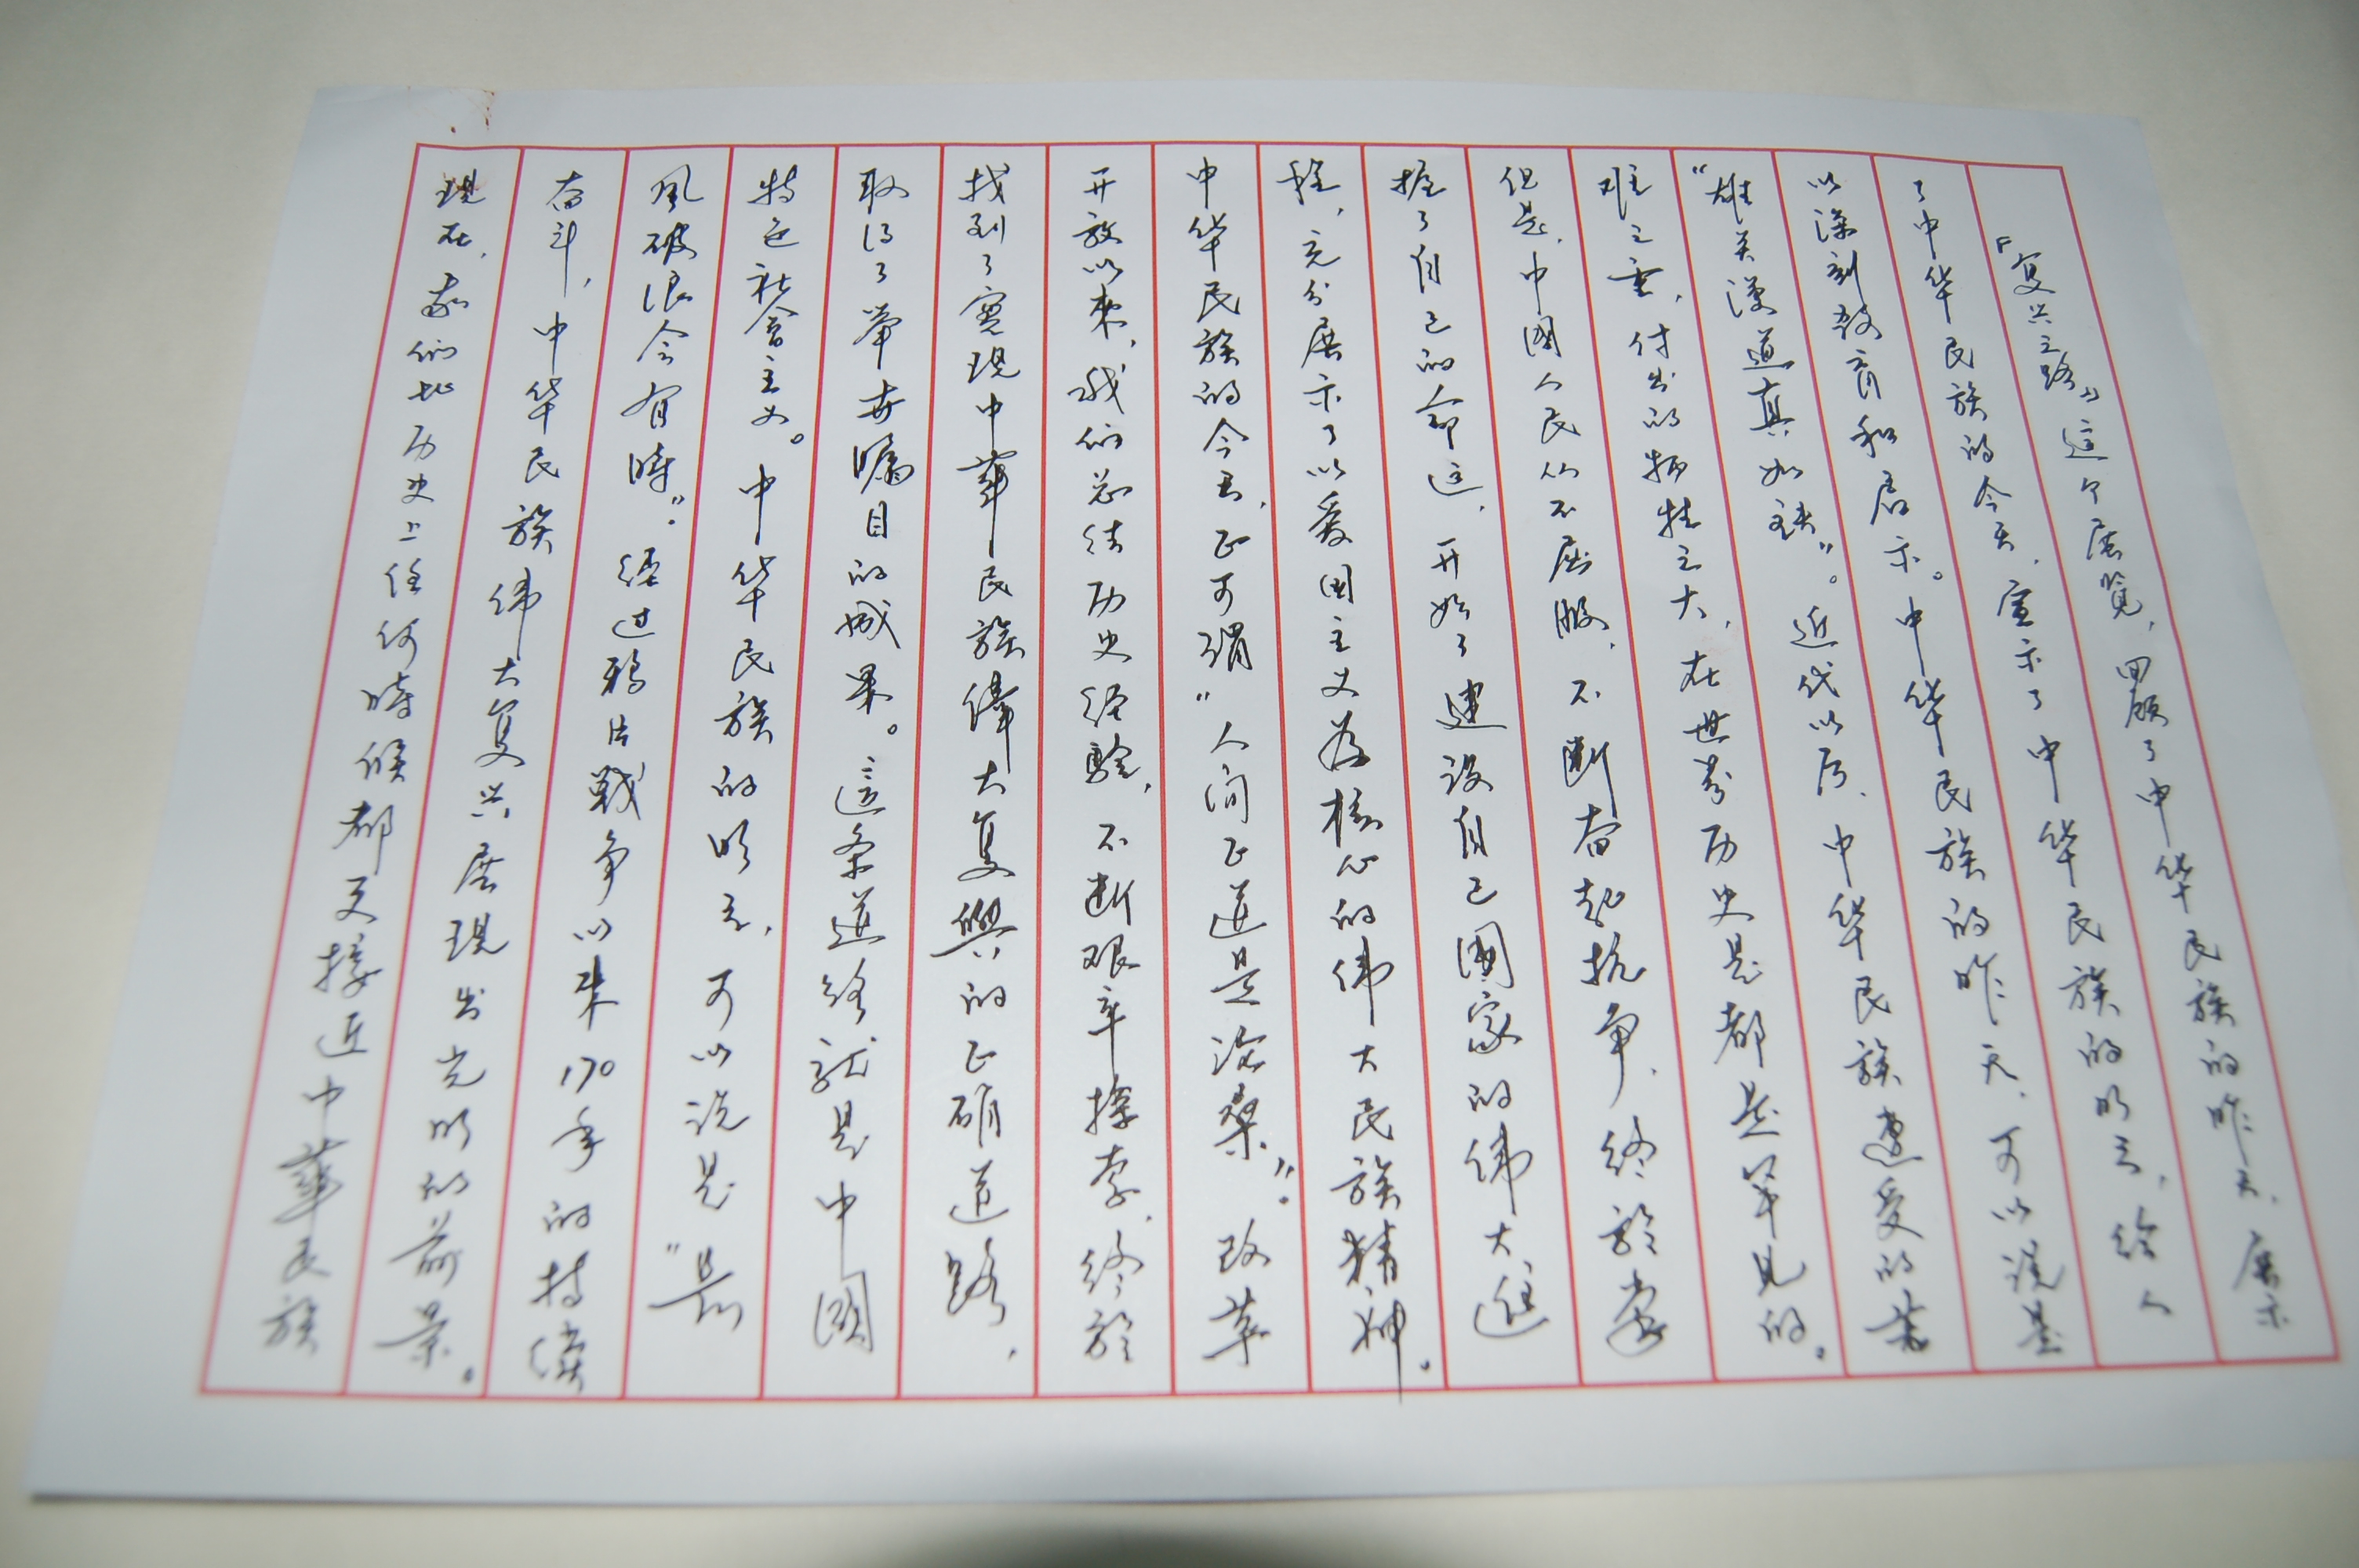 『复兴之路』这个展览，回顾了中华民族的昨天，展示
了中华民族的今天，宣示了中华民族的明天，给人
以深刻教育和启示。中华民族的昨天，可以说是
“雄关漫道真如铁”。近代以后，中华民族遭受的苦
难之重，付出的牺牲之大，在世界历史是都是罕见的。
但是，中國人民从不屈服，不断奋起抗争，终於掌
握了自己的命运，开始了建设自己國家的伟大进
程，充分展示了以爱国主义为核心的伟大民族精神。
中华民族的今天，正可谓“人间正道是沧桑”。改革
开放以来，我们总结历史经验，不断艰辛探索，终於
找到了實现中華民族偉大复興的正确道路，
取得了举世瞩目的成果。这条道路就是中國
特色社会主义。中华民族的明天，可以说是“長
風破浪会有時”。经过鸦片戰争以来170年的持续
奋斗，中华民族伟大复兴展现出光明的前景。
现在，我们比历史上任何時候都更接近中華民族